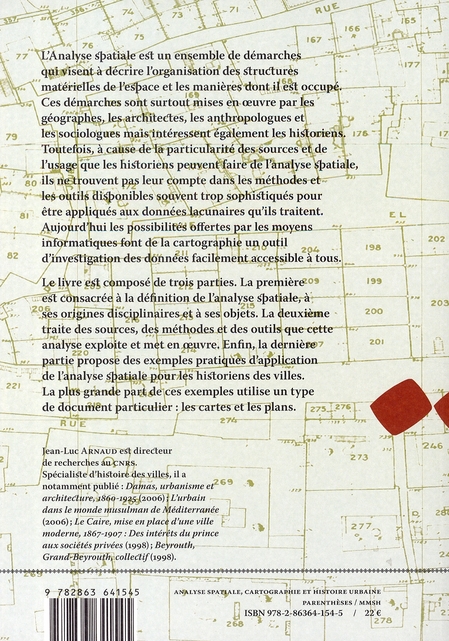 RUE
L'Analyse spatiale est un ensemble de démarches
qui visent à décrire l'organisation des structures
matérielles de l'espace et les manières dont il est occupé.
Ces démarches sont surtout mises en œuvre par les
géographes, les architectes, les anthropologues et
les sociologues mais intéressent également les historiens.
Toutefois, à cause de la particularité des sources et de
l'usage que les historiens peuvent faire de l'analyse spatiale,
ils ne trouvent pas leur compte dans les méthodes et
les outils disponibles souvent trop sophistiqués pour
être appliqués aux données lacunaires qu'ils traitent.
Aujourd'hui les possibilités offertes par les moyens
informatiques font de la cartographie un outil
d'investigation des données facilement accessible à tous.
Le livre est composé de trois parties. La première
est consacrée à la définition de l'analyse spatiale, à
ses origines disciplinaires et à ses objets. La deuxième
traite des sources, des méthodes et des outils que cette
analyse exploite et met en œuvre. Enfin, la dernière
partie propose des exemples pratiques d'application
de l'analyse spatiale pour les historiens des villes.
La plus grande part de ces exemples utilise un type
de document particulier : les cartes et les plans.
Jean-Luc ARNAUD est directeur
de recherches au CNRS.
Spécialiste d'histoire des villes, il a
notamment publié : Damas, urbanisme et
architecture, 1860-1925 (2006) ; L'urbain
dans le monde musulman de Méditerranée
(2006) ; Le Caire, mise en place d'une ville
moderne, 1867-1907 : Des intérêts du prince
aux sociétés privées (1998) ; Beyrouth,
Grand-Beyrouth, collectif (1998).
RUE
166
167
165
177
176
175
180
179
169
79
82
81
EL
202
201
198
199
200
207
208
209
210
211
212
213
220
221
275
276
246
245
274
9 782863 641545
ANALYSE SPATIALE, CARTOGRAPHIE ET HISTOIRE URBAINE
PARENTHÈSES / MMSH
ISBN 978-2-86364-154-5 / 22 €